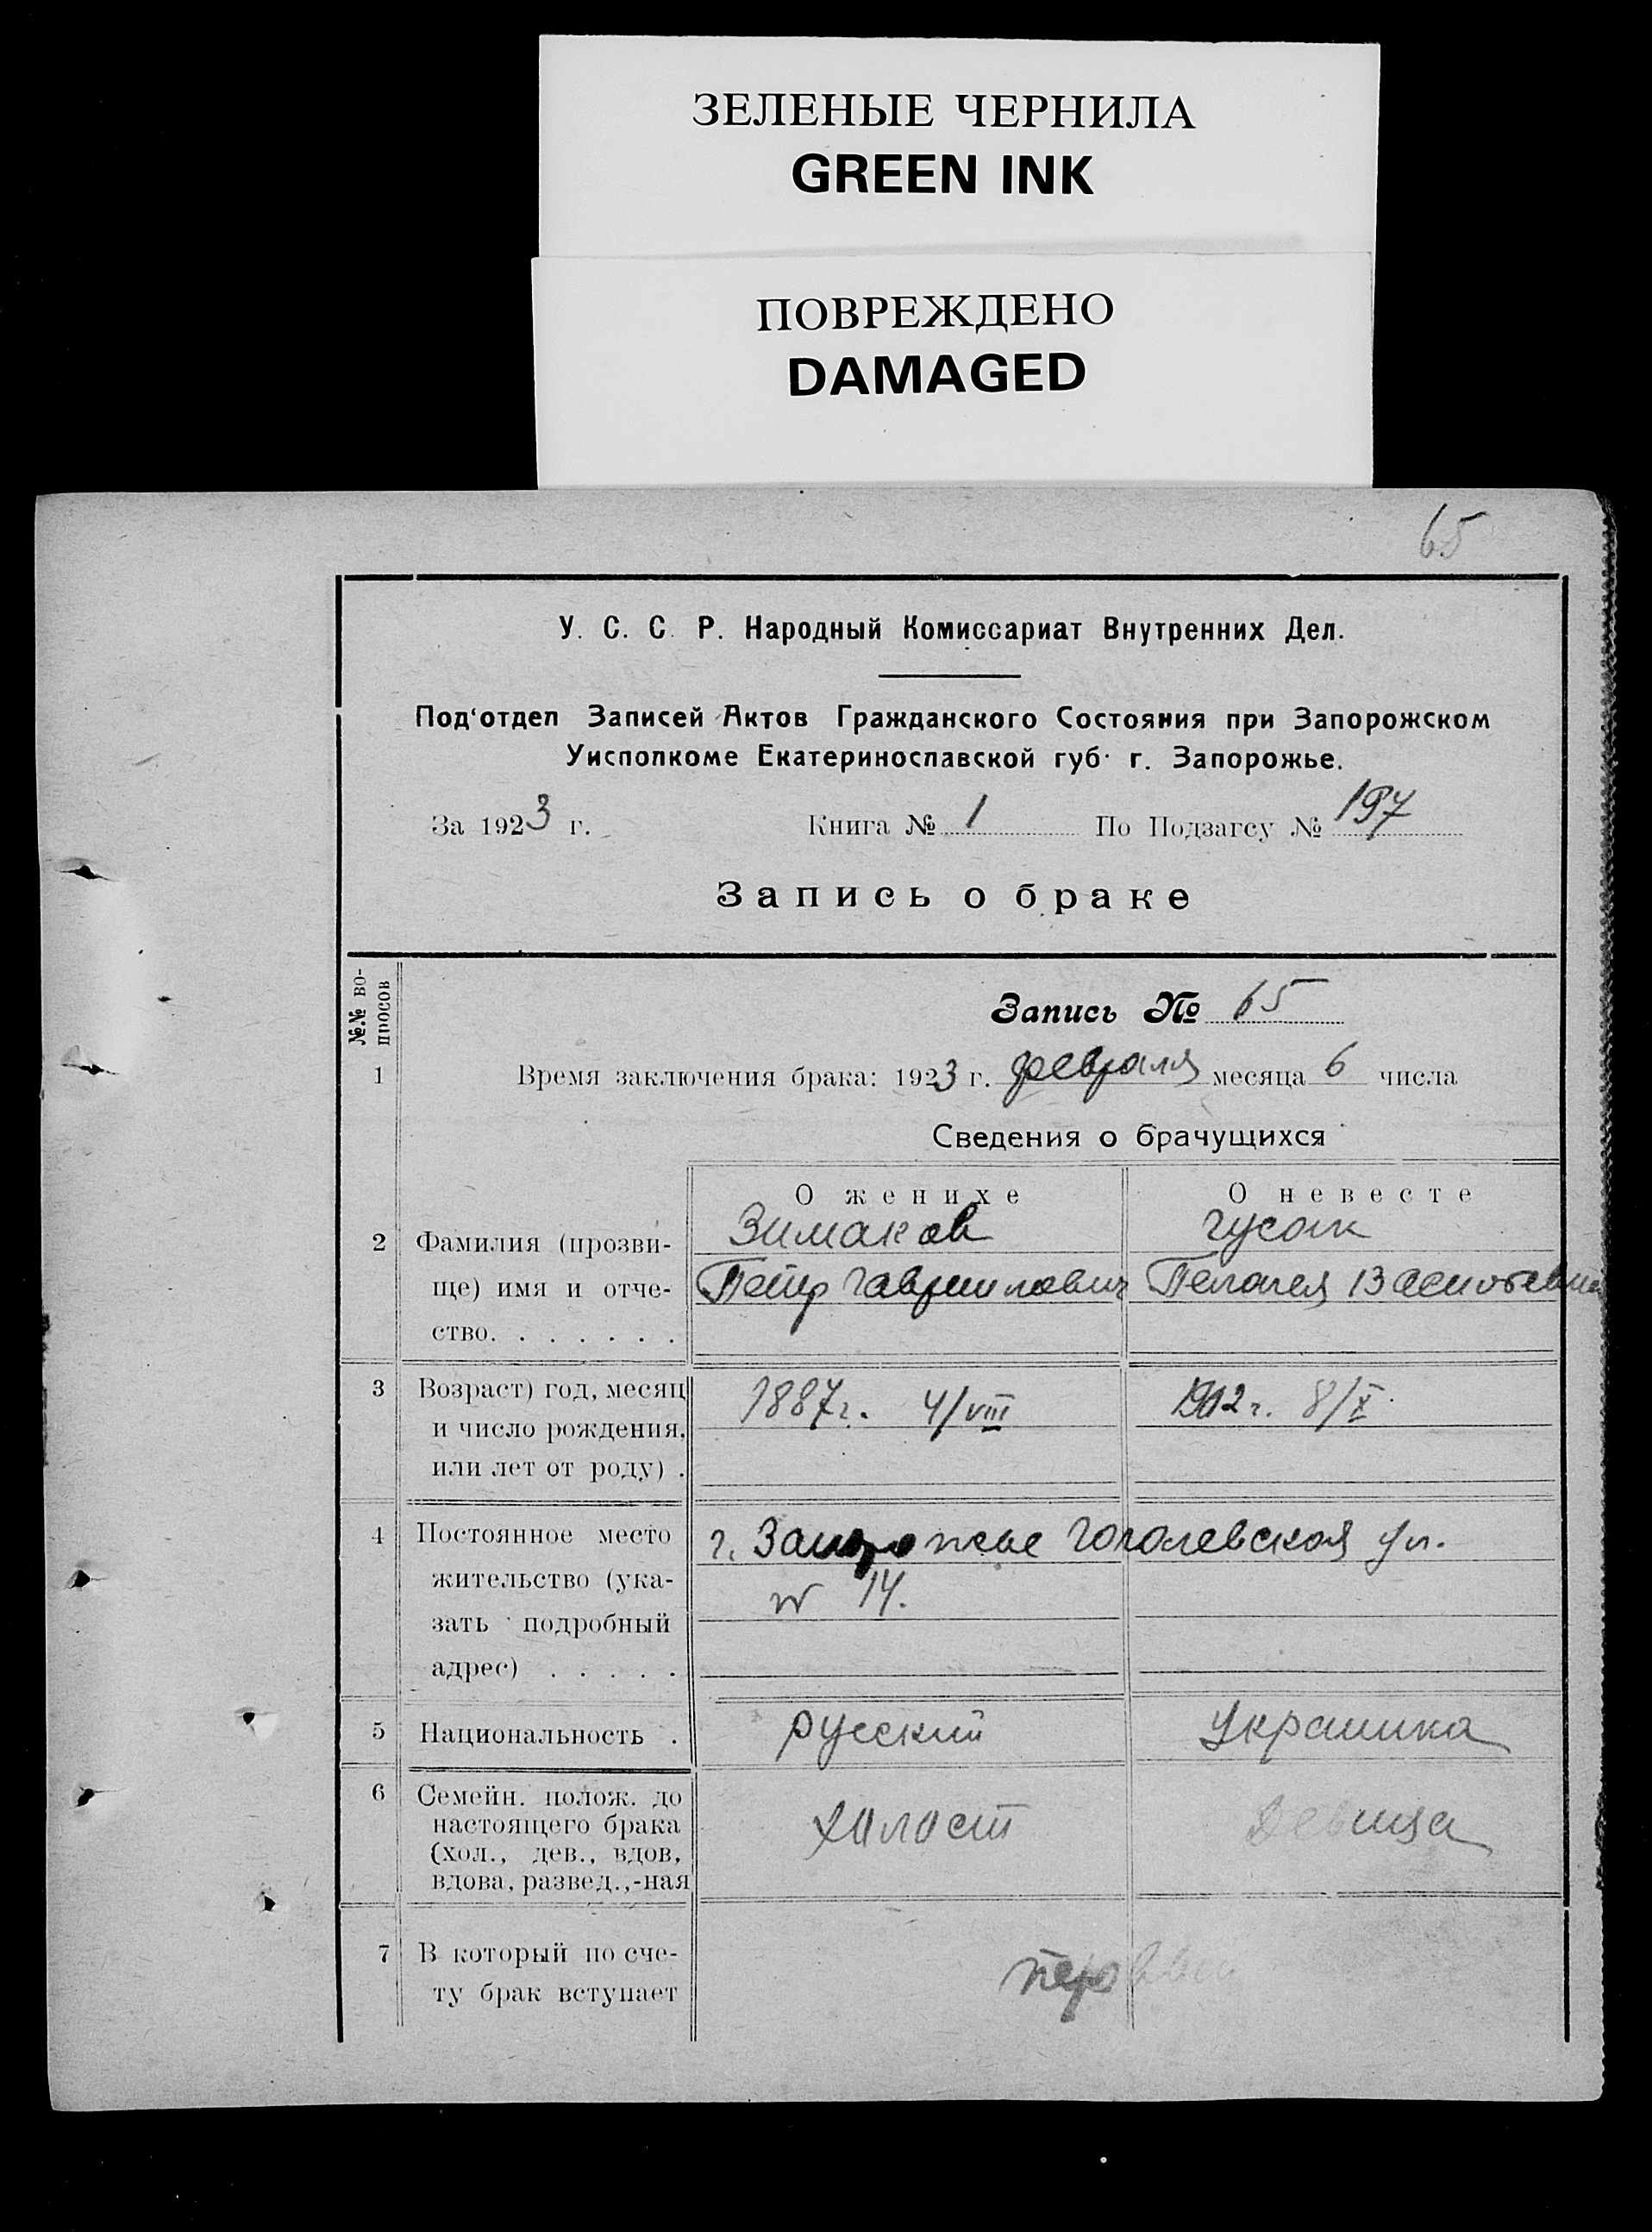 ЗЕЛЕНЫЕ ЧЕРНИЛА
GREEN INK
ПОВРЕЖДЕНО
DAMAGED
65
У. С. С. Р. Народный Комиссариат Внутренних Дел.
Под‘отдел Записей Актов Гражданского Состояния при Запорожском
Уисполкоме Екатеринославской губ. г. Запорожье.
За 1923 г. Книга № 1 По Подзагсу № 197
Запись о браке
№№ во-
просов
Запись № 65
1 Время заключения брака: 1923 г. февраля месяца 6 числа
Сведения о брачущихся
О женихе О невесте
2 Фамилия (прозви- Зимаков Гусак
ще) имя и отче- Петр Гавриилович Пелагея
ство. . . . . . .
3 Возраст) год, месяц 1887г. 4/VIII 1902г. 8/X.
и число рождения,
или лет от роду) .
4 Постоянное место г. Запорожье Гоголевская ул.
жительство (ука- № 14.
зать подробный
адрес) . . . . .
5 Национальность . русский Украинка
6 Семейн. полож. до
настоящего брака холост девица
(хол., дев., вдов,
вдова, развед.,-ная
7 В который по сче- первый
ту брак вступает